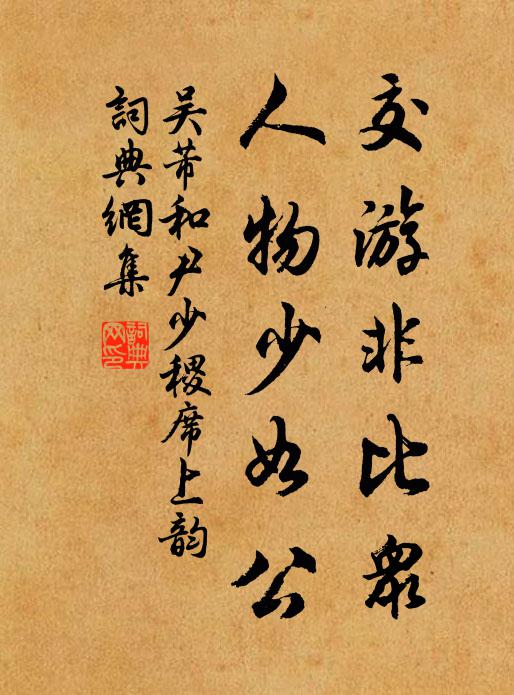 交游非比眾
人物少如公
吴芾和尹少稷席上韵
詞典網集
詞典网印